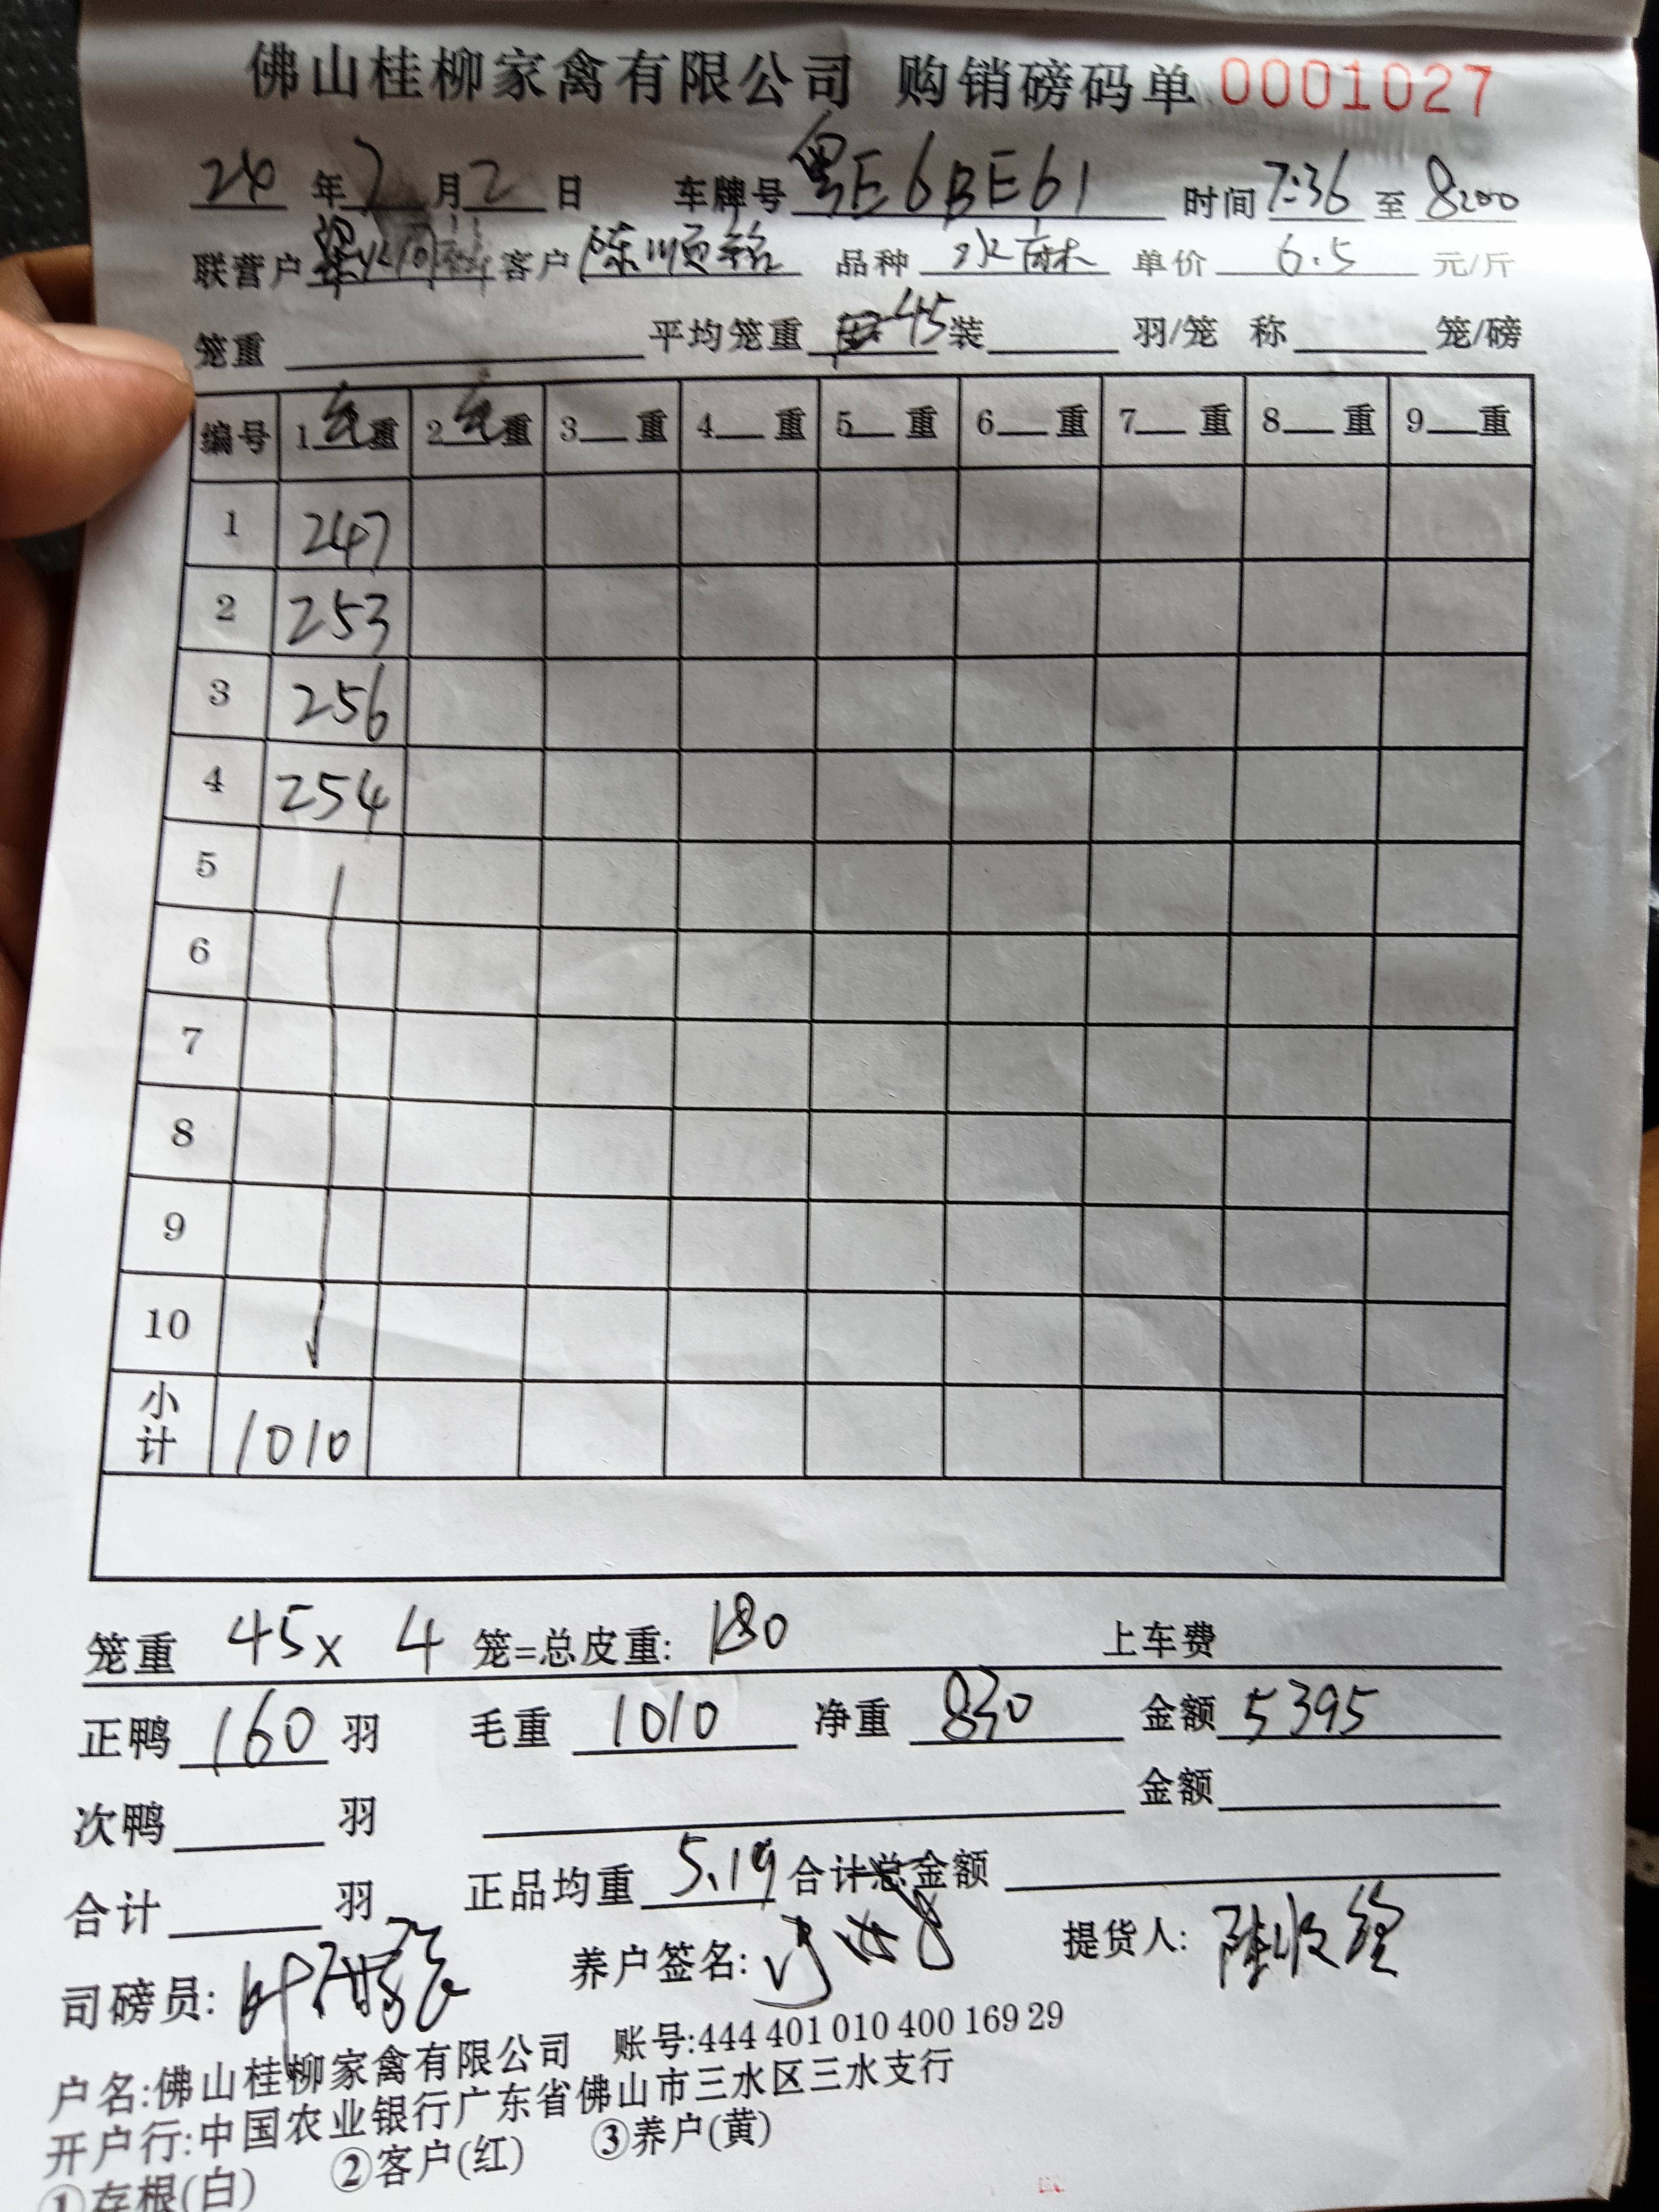 佛山桂柳家禽有限公司 购销磅码单 0001027
24 年 7 月 2 日 车牌号 粤E6BE61 时间 7:36 至 8:00
联营户 客户 陈顺铭 品种 水麻 单价 6.5 元/斤
笼重 平均笼重 45 装 羽/笼 称 笼/磅
编号 1毛重 2毛重 3 重 4 重 5 重 6 重 7 重 8 重 9 重
1 247
2 253
3 256
4 254
5
6
7
8
9
10
小计 1010
笼重 45 x 4 笼=总皮重: 180 上车费
正鸭 160 羽 毛重 1010 净重 830 金额 5395
次鸭 羽 金额
合计 羽 正品均重 5.19 合计总金额
司磅员: 养户签名: 提货人:
户名:佛山桂柳家禽有限公司 账号:444 401 010 400 169 29
开户行:中国农业银行广东省佛山市三水区三水支行
①存根(白) ②客户(红) ③养户(黄)